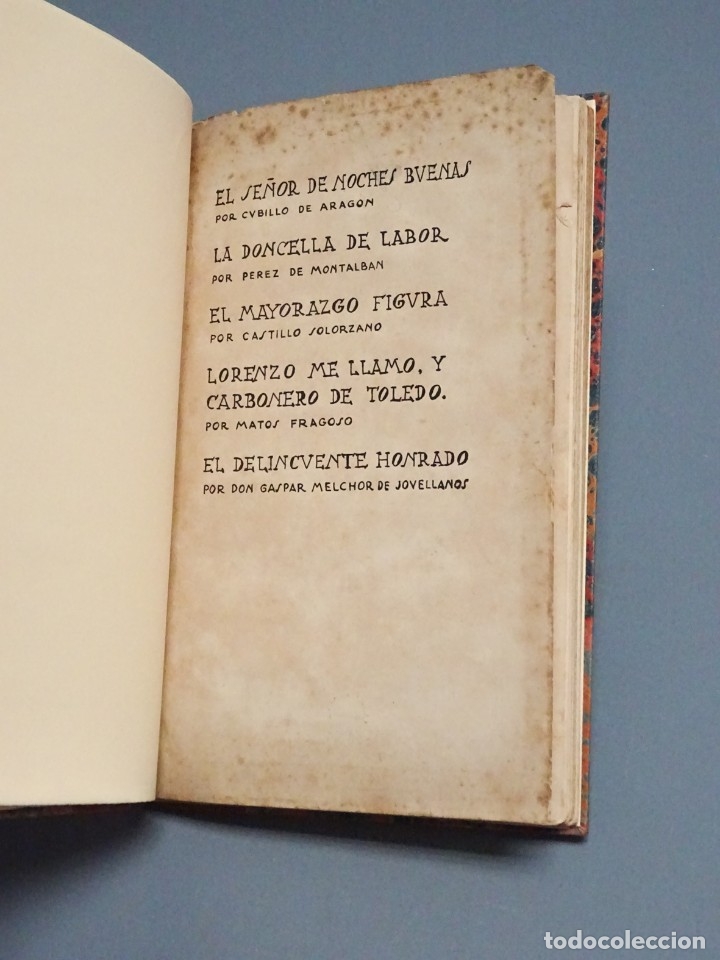 EL SEÑOR DE NOCHES BVENAS
POR CVBILLO DE ARAGON
LA DONCELLA DE LABOR
POR PEREZ DE MONTALBAN
EL MAYORAZGO FIGVRA
POR CASTILLO SOLORZANO
LORENZO ME LLAMO, Y
CARBONERO DE TOLEDO.
POR MATOS FRAGOSO
EL DELINCVENTE HONRADO
POR DON GASPAR MELCHOR DE JOVELLANOS
todocoleccion